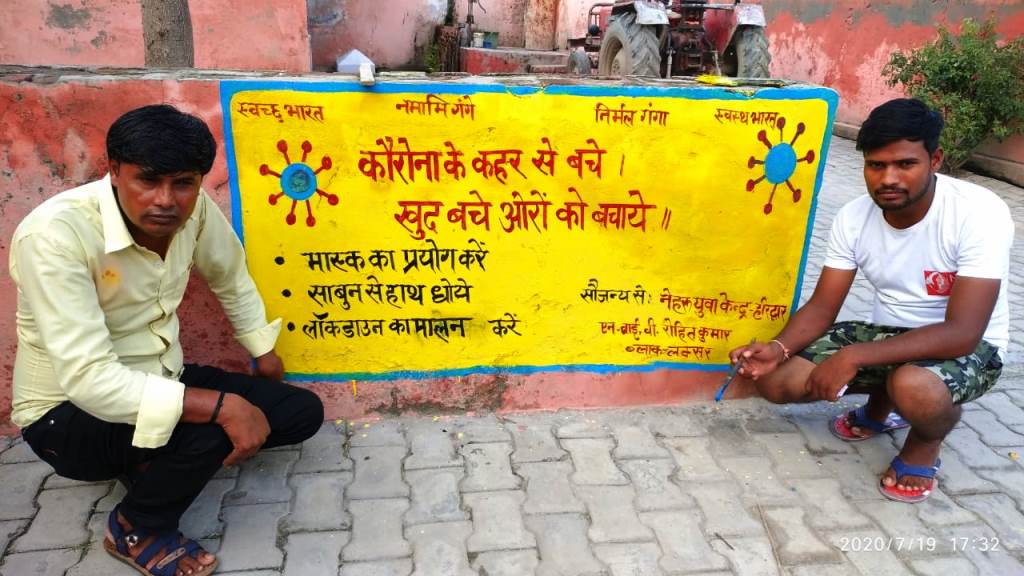 स्वच्छ भारत नमामि गंगे निर्मल गंगा स्वस्थ भारत
कौरोना के कहर से बचे ।
खुद बचे ओरों को बचाये ॥
• मास्क का प्रयोग करें
• साबुन से हाथ धोये
• लॉकडाउन का पालन करें
सौजन्य से: नेहरू युवा केन्द्र-हरिद्वार
एन.वाई.वी. रोहित कुमार
ब्लाक-लक्सर
2020/7/19 17:32